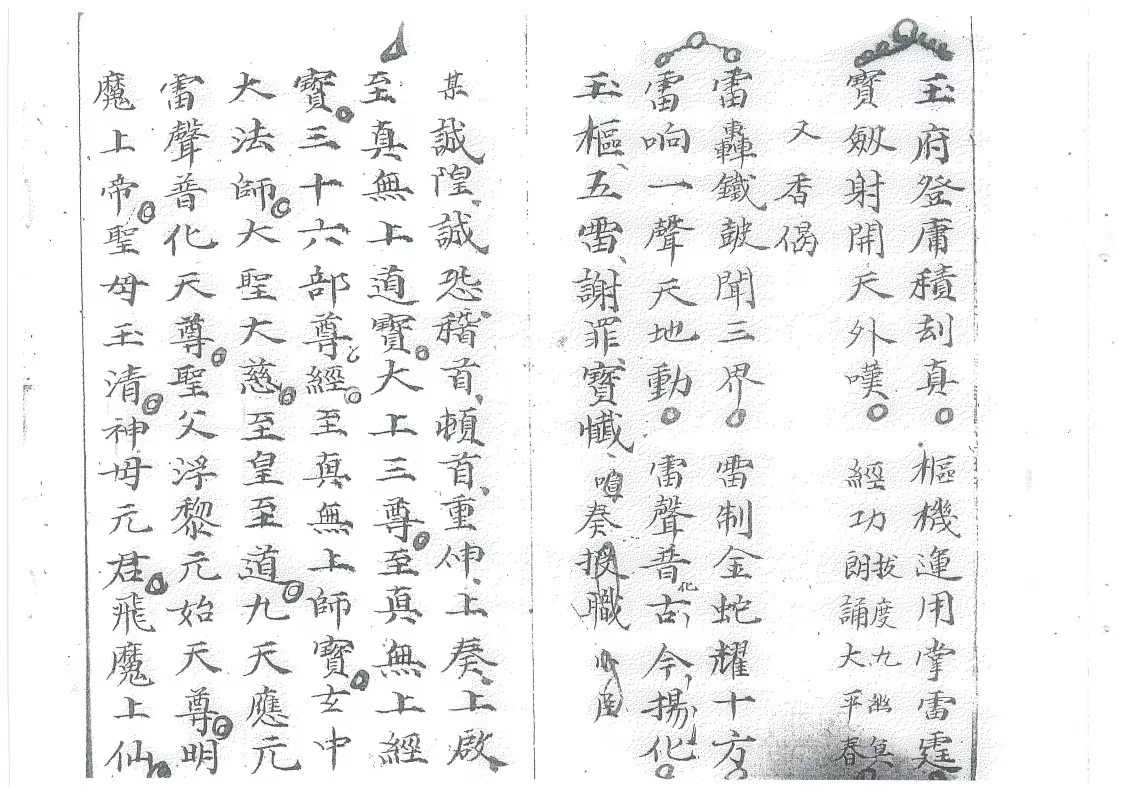 玉府登庸積刦真樞機運用掌雷霆
寶劔射開天外嘆經功拔度九幽冥朗誦大平春
又香偈
雷轟鐵皷聞三界雷制金蛇耀十方
雷响一聲天地動雷聲普化古今揚化
玉樞五雷謝罪寶懺啨奏授職小臣
某誠隍誠恐稽首頓首重伸上奏上啟
至真無上道寶大上三尊至真無上經
寶三十六部尊經至真無上師寶玄中
大法師大聖大慈至皇至道九天應元
雷聲普化天尊聖父浮黎元始天尊明
魔上帝聖母玉清神母元君飛魔上仙